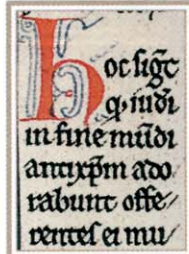 hoc sigт̄
q iudi
in fine mūdi
antixp̄m ado
rabunt offe/
rentes ei mu/